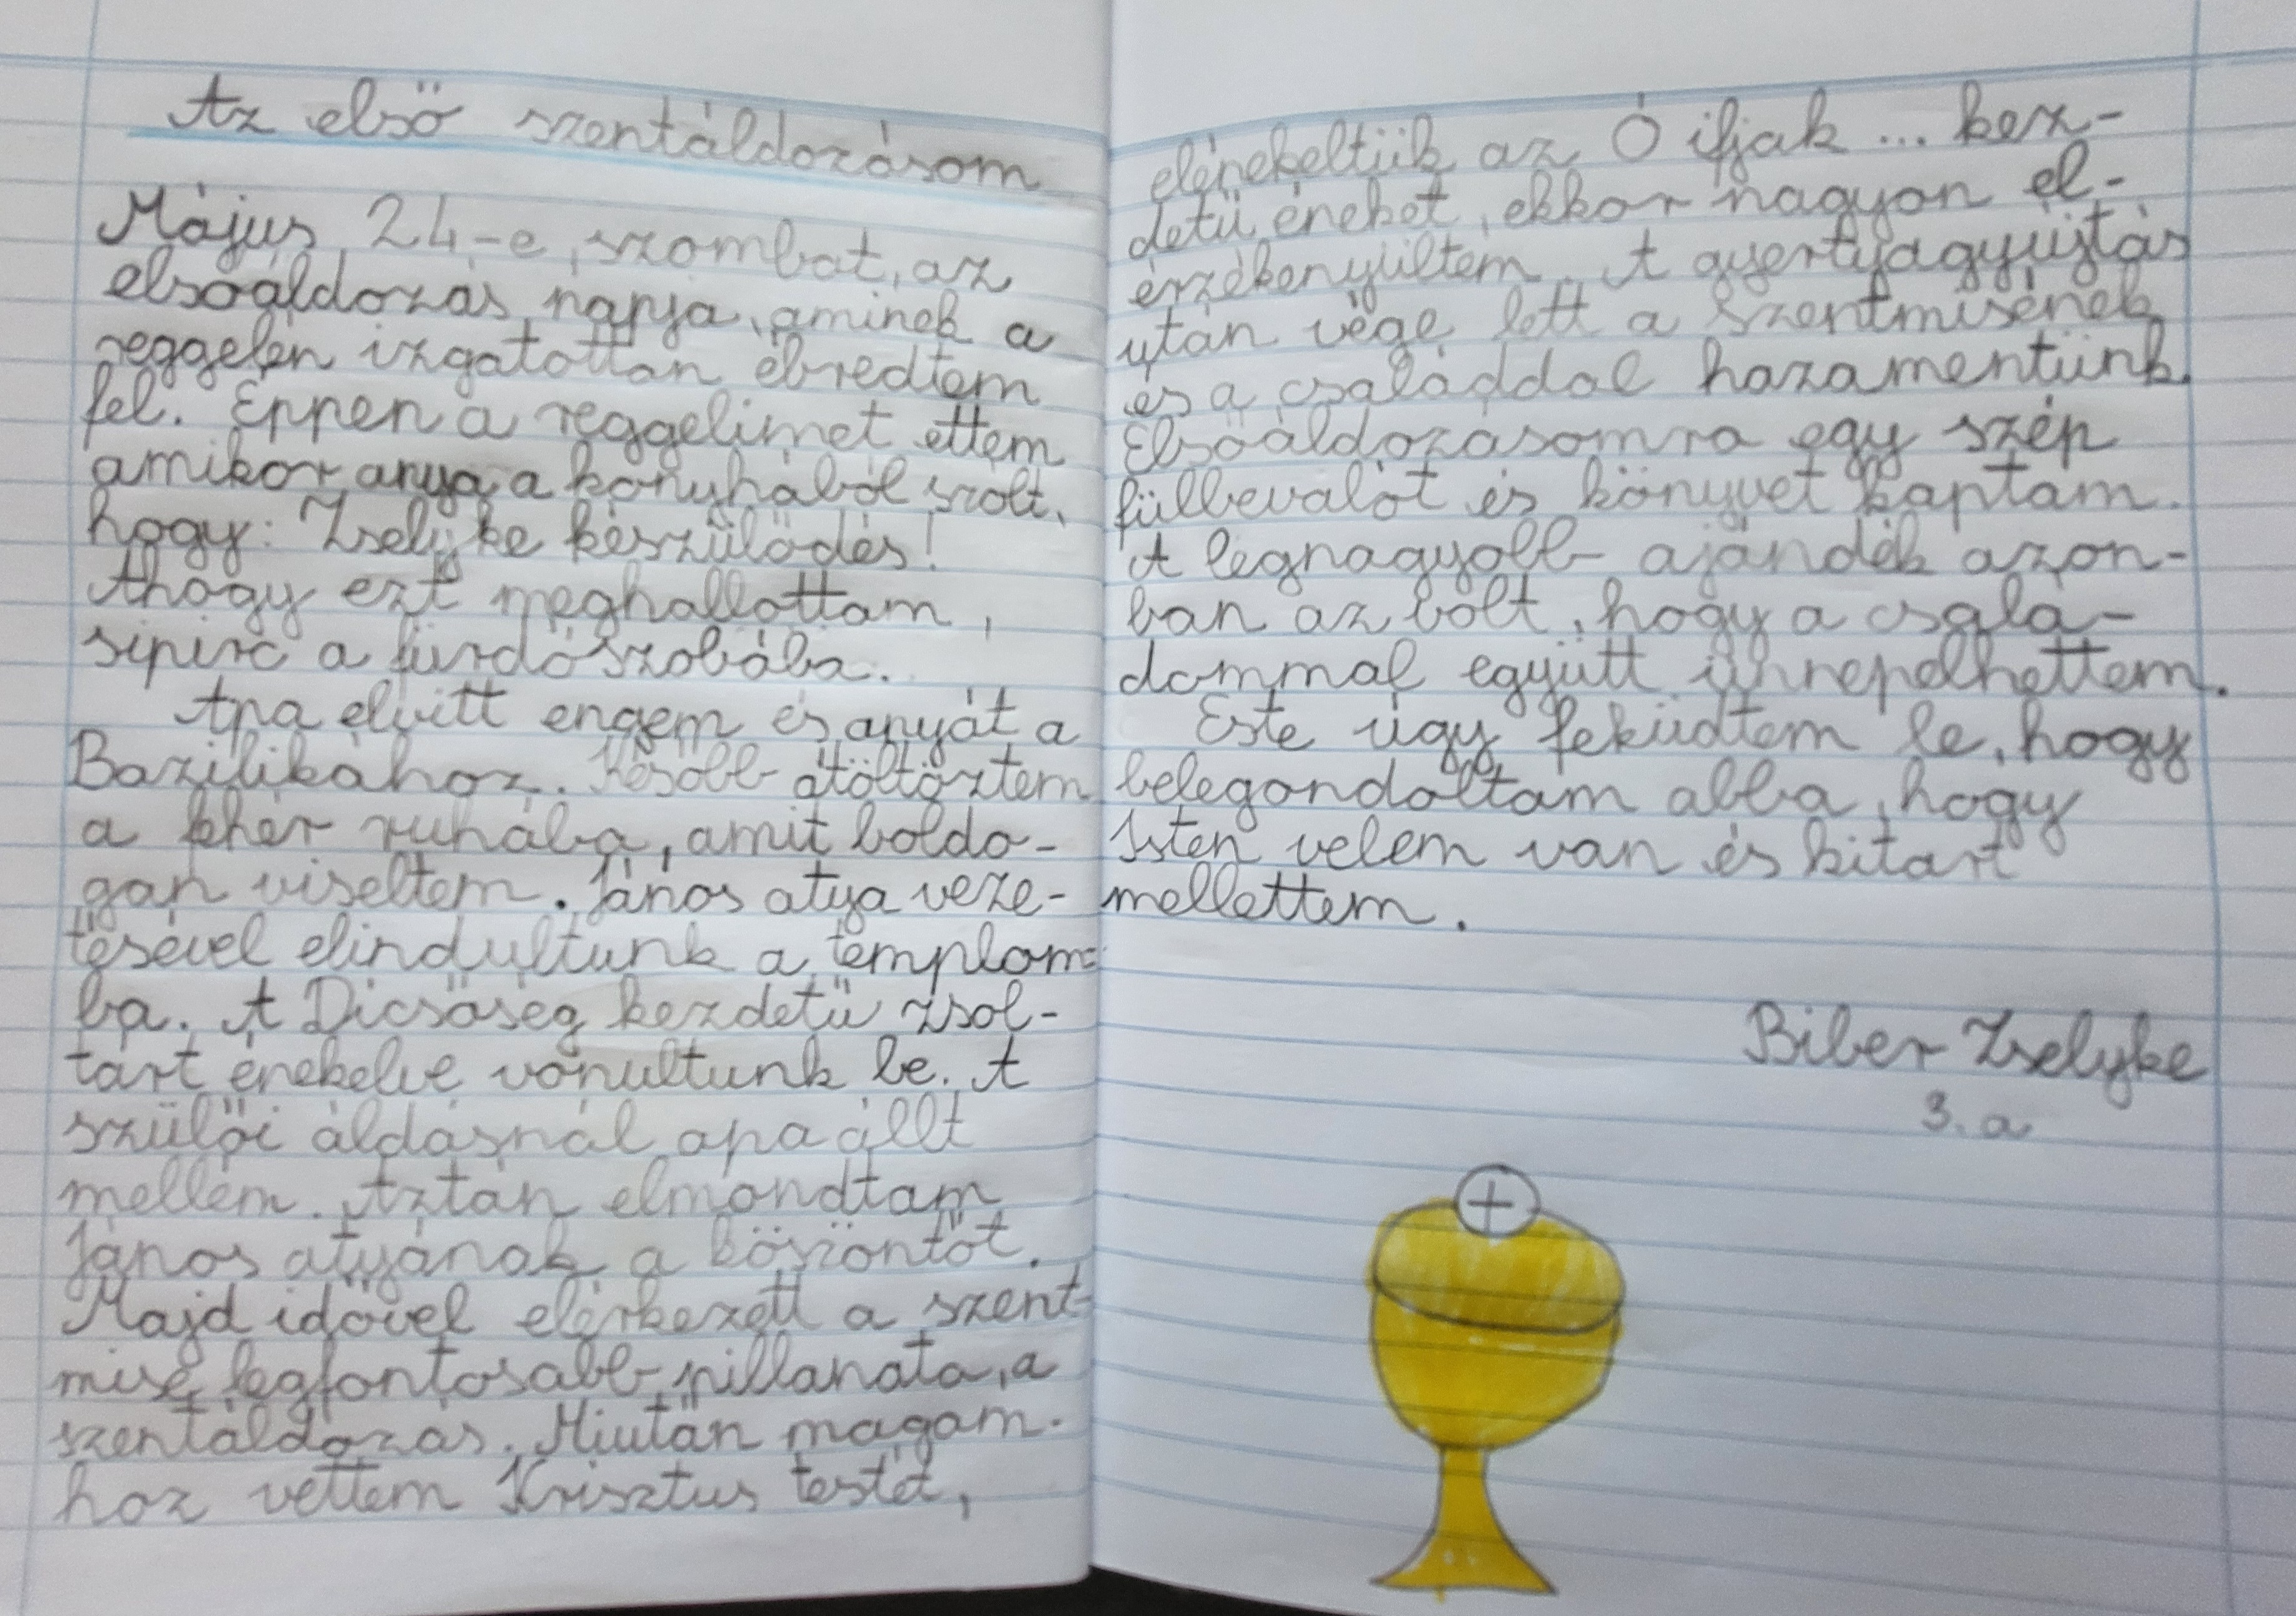 Az első szentáldozásom
Május 24-e, szombat, az
elsőáldozás napja, aminek a
reggelén izgatottan ébredtem
fel. Éppen a reggelimet ettem
amikor anya a konyhából szólt,
hogy: Zselyke készülődés!
Ahogy ezt meghallottam,
sipirc a fürdőszobába.
Apa elvitt engem és anyát a
Bazilikához. Később átöltöztem
a fehér ruhába, amit boldo-
gan viseltem. János atya veze-
tésével elindultunk a templom-
ba. A Dicsőség kezdetű zsol-
tárt énekelve vonultunk be. A
szülői áldásnál apa állt
mellém. Aztán elmondtam
János atyának a köszöntőt.
Majd idővel elérkezett a szent-
mise legfontosabb pillanata, a
szentáldozás. Miután magam-
hoz vettem Krisztus testét,
elénekeltük az Ó ifjak ... kez-
detű éneket, ekkor nagyon el-
érzékenyültem. A gyertyagyújtás
után vége lett a szentmisének
és a családdal hazamentünk.
Elsőáldozásomra egy szép
fülbevalót és könyvet kaptam.
A legnagyobb ajándék azon-
ban az volt, hogy a csalá-
dommal együtt ünnepelhettem.
Este úgy feküdtem le, hogy
belegondoltam abba, hogy
Isten velem van és kitart
mellettem.
Biber Zselyke
3. a